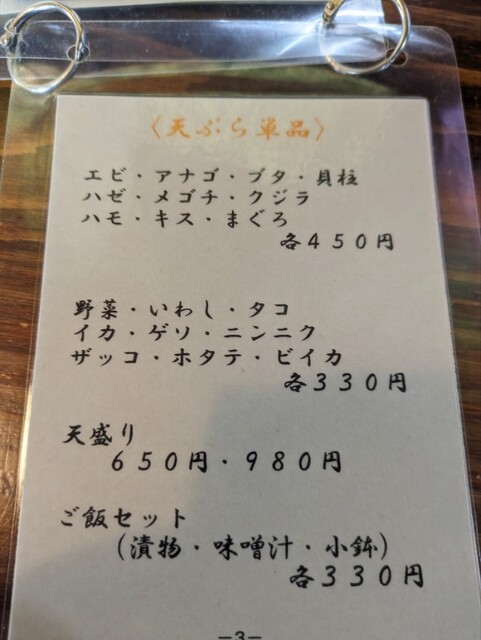 〈天ぷら単品〉
エビ・アナゴ・ブタ・貝柱
ハゼ・メゴチ・クジラ
ハモ・キス・まぐろ
各４５０円
野菜・いわし・タコ
イカ・ゲソ・ニンニク
ザッコ・ホタテ・ビイカ
各３３０円
天盛り
６５０円・９８０円
ご飯セット
(漬物・味噌汁・小鉢)
各３３０円
－3－